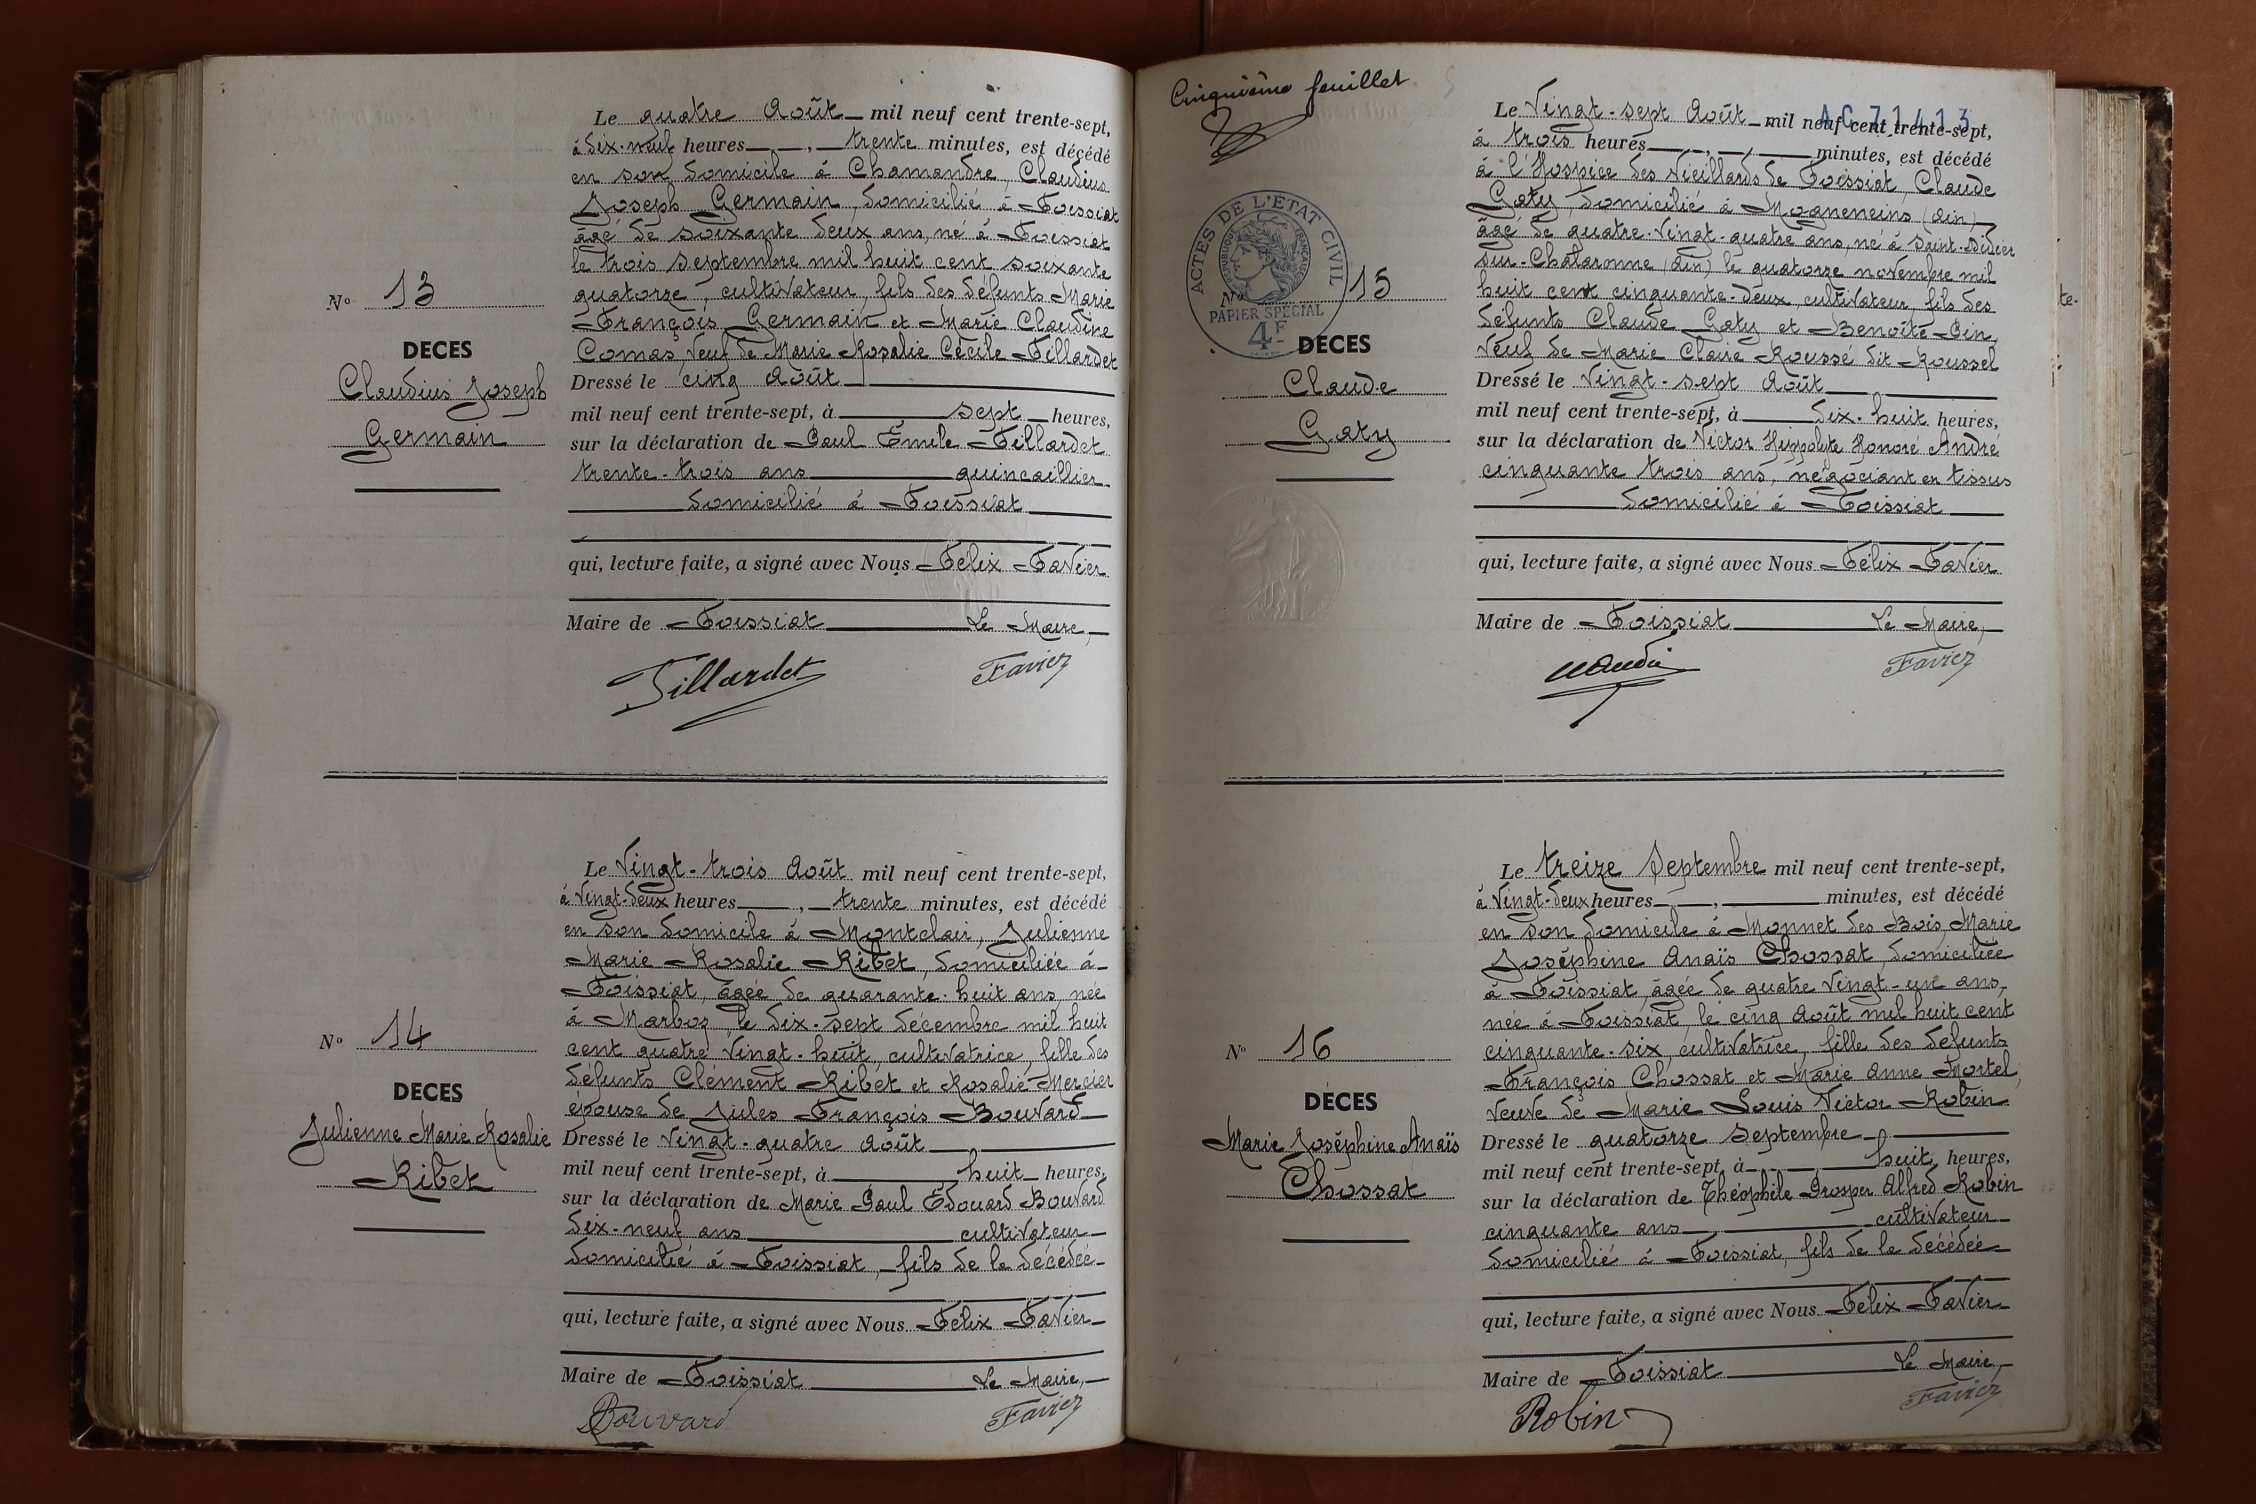 Le quatre Août mil neuf cent trente-sept,
à dix-neuf heures, trente minutes, est décédé
en son domicile à Chamandre, Claudius
Joseph Germain, domicilié à Foissiat
âgé de soixante deux ans, né à Foissiat
le trois septembre mil huit cent soixante
quatorze, cultivateur, fils des défunts Marie
François Germain et Marie Claudine
Comas, veuf de Marie Rosalie Cécile Tillardet
Dressé le cinq Août
mil neuf cent trente-sept, à sept heures,
sur la déclaration de Paul Émile Tillardet
trente-trois ans quincaillier
domicilié à Foissiat
qui, lecture faite, a signé avec Nous Félix Favier
Maire de Foissiat Le Maire,
Tillardet Favier
No 13
DECES
Claudius Joseph
Germain
Le Vingt-trois Août mil neuf cent trente-sept,
à Vingt-deux heures, trente minutes, est décédé
en son domicile à Montclair, Julienne
Marie Rosalie Ribet, domiciliée à
Foissiat, âgée de quarante-huit ans, née
à Marboz, le dix-sept décembre mil huit
cent quatre Vingt-huit, cultivatrice, fille des
défunts Clément Ribet et Rosalie Mercier
épouse de Jules François Bouvard
Dressé le Vingt-quatre Août
mil neuf cent trente-sept, à huit heures,
sur la déclaration de Marie Paul Édouard Bouvard
dix-neuf ans cultivateur
domicilié à Foissiat, fils de la décédée
qui, lecture faite, a signé avec Nous Félix Favier
Maire de Foissiat Le Maire,
Bouvard Favier
No 14
DECES
Julienne Marie Rosalie
Ribet
Cinquième feuillet
ACTES DE L'ETAT CIVIL
REPUBLIQUE FRANÇAISE
PAPIER SPECIAL
4F
AC 71413
Le Vingt-sept Août mil neuf cent trente-sept,
à trois heures, minutes, est décédé
à l'Hospice des Vieillards de Foissiat, Claude
Gaty, domicilié à Mogneneins (Ain)
âgé de quatre-Vingt-quatre ans, né à Saint-Didier
sur-Chalaronne (Ain) le quatorze novembre mil
huit cent cinquante-deux, cultivateur, fils des
défunts Claude Gaty et Benoîte
Veuf de Marie Claire Roussé dit Roussel
Dressé le Vingt-sept Août
mil neuf cent trente-sept, à dix-huit heures,
sur la déclaration de Victor Hippolyte Honoré André
cinquante trois ans, négociant en tissus
domicilié à Foissiat
qui, lecture faite, a signé avec Nous Félix Favier
Maire de Foissiat Le Maire,
Favier
No 15
DECES
Claude
Gaty
Le treize Septembre mil neuf cent trente-sept,
à Vingt-deux heures, minutes, est décédé
en son domicile à Monnet des Bois, Marie
Joséphine Anaïs Chossat, domiciliée
à Foissiat, âgée de quatre Vingt-un ans,
née à Foissiat, le cinq Août mil huit cent
cinquante-six, cultivatrice, fille des défunts
François Chossat et Marie Anne Mortel,
Veuve de Marie Louis Victor Robin
Dressé le quatorze septembre
mil neuf cent trente-sept à huit heures,
sur la déclaration de Théophile Prosper Alfred Robin
cinquante ans cultivateur
domicilié à Foissiat, fils de la décédée
qui, lecture faite, a signé avec Nous Félix Favier
Maire de Foissiat Le Maire,
Robin Favier
No 16
DECES
Marie Joséphine Anaïs
Chossat